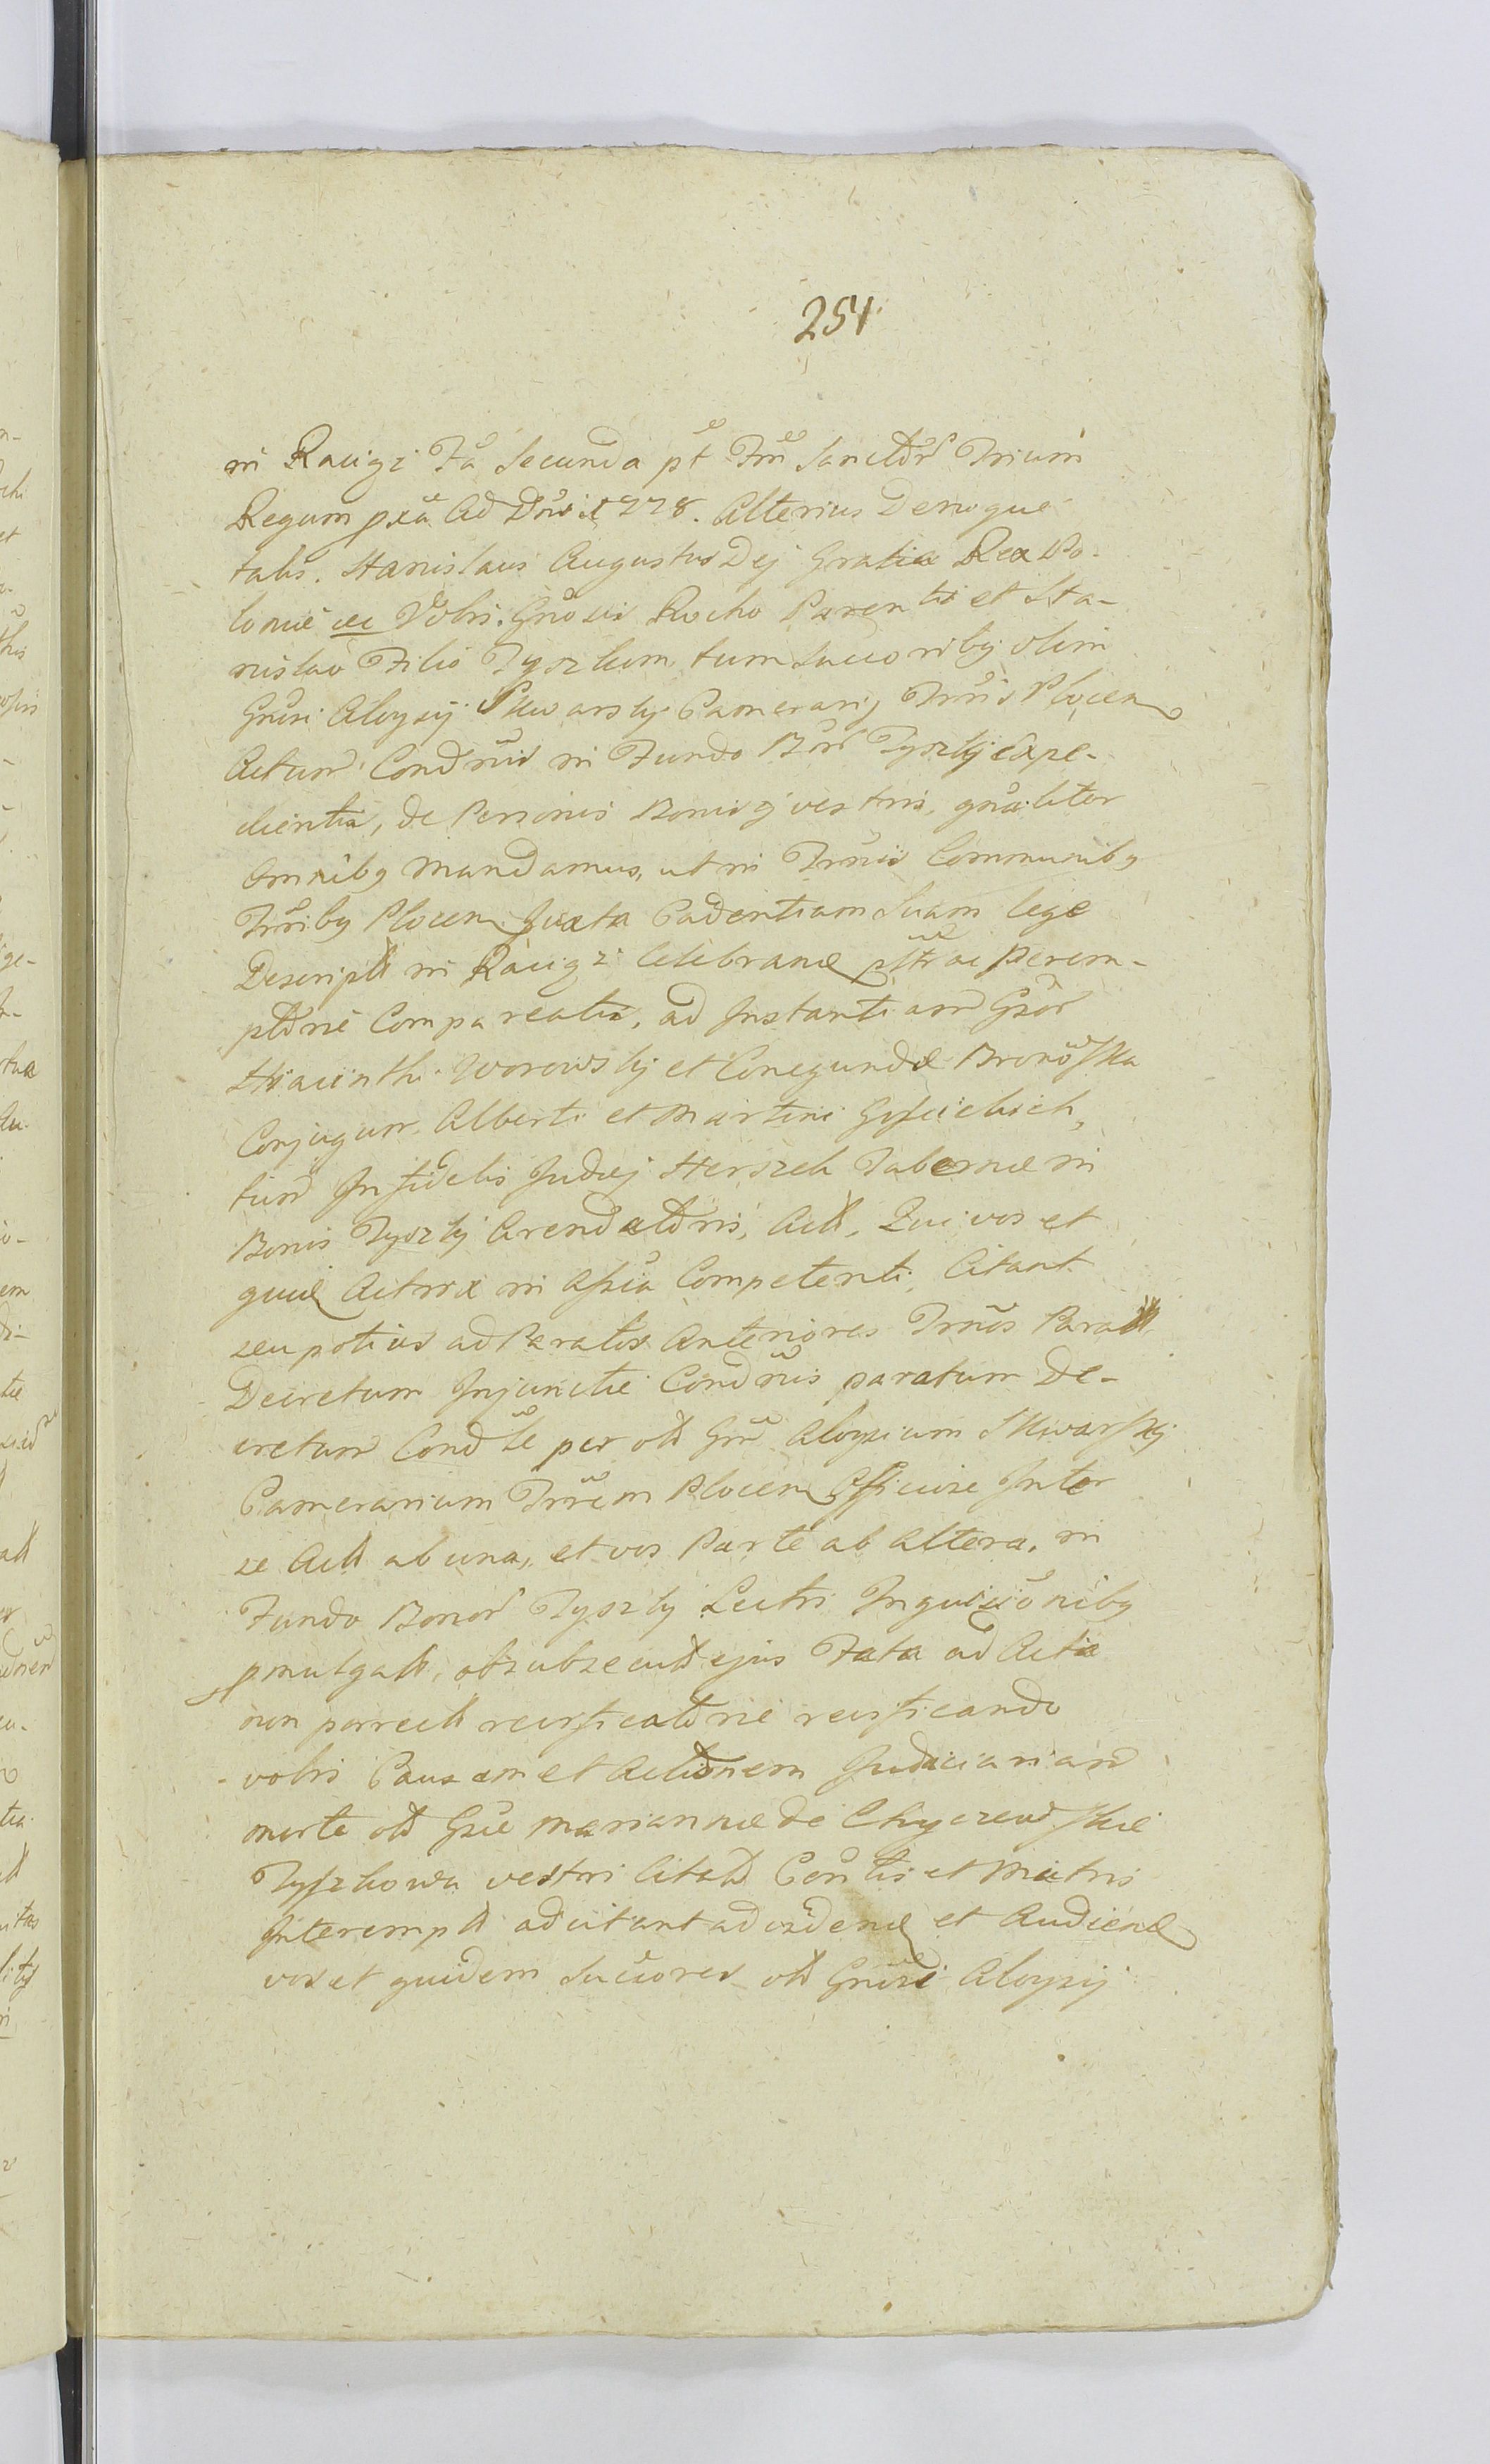 254
in Raciąż Fa Secunda pt Fm Sanctor Trium
Regum pxa Ad Dni 1778. Alterius Denique
talis. Stanislaus Augustus Dej Gratia Rex Po-
loniæ etc Vobis. Gnosis Rocho Parenti et Sta-
nislao Filio Tyszkom tum Succoribq olim
Gnosi Aloysij Skwarskj Camerarij Trris Plocen
Actum Condnis in Fundo Bor Tyszkj Expe-
dientis, de Personis Bonisq vestris, gnaliter
Omnibq Mandamus, ut in Trnis Communibq
Trribq Plocen Juxta Cadentiam Suam lege
Descript in Raciąż Celebrand psttr ac Perem-
ptorie Compareatis, ad Instantiam Gsor
Hiacinthi Worowskj et Conegundæ Bronoska
Conjugum Alberti et Martini
tum Infidelis Judæj Herszek Tabernæ in
Bonis Tyszkj Arendatoris, Act, Qui vos et
quæ Actrix in Assia Competenti, Citant
seu potius ad Paratis Anteriores Trnos Parat
Decretum Injunctæ Condnis paratum De-
cretum Cond te per ol Gnm Aloysium Skwarskj
Camerarium Trrem Plocen Officiose Inter
se Act ab una, et vos Parte ab altera, in
Fundo Bonor Tyszkj Lectis Inquisionibq
pmulgatt, obsubsecutt ejus Fata ad Acta
non porrectt reiosficatorie reiosficando
vobis Causam et Actionem Judiciariam
morte ol Gsæ Mariannæ de Chyczewskie
Tyszkowa vestri Citator Contis et Matris
Interempt adcitant ad vidend et Audiend
vos et quidem Succores ol Gnosi Aloysij